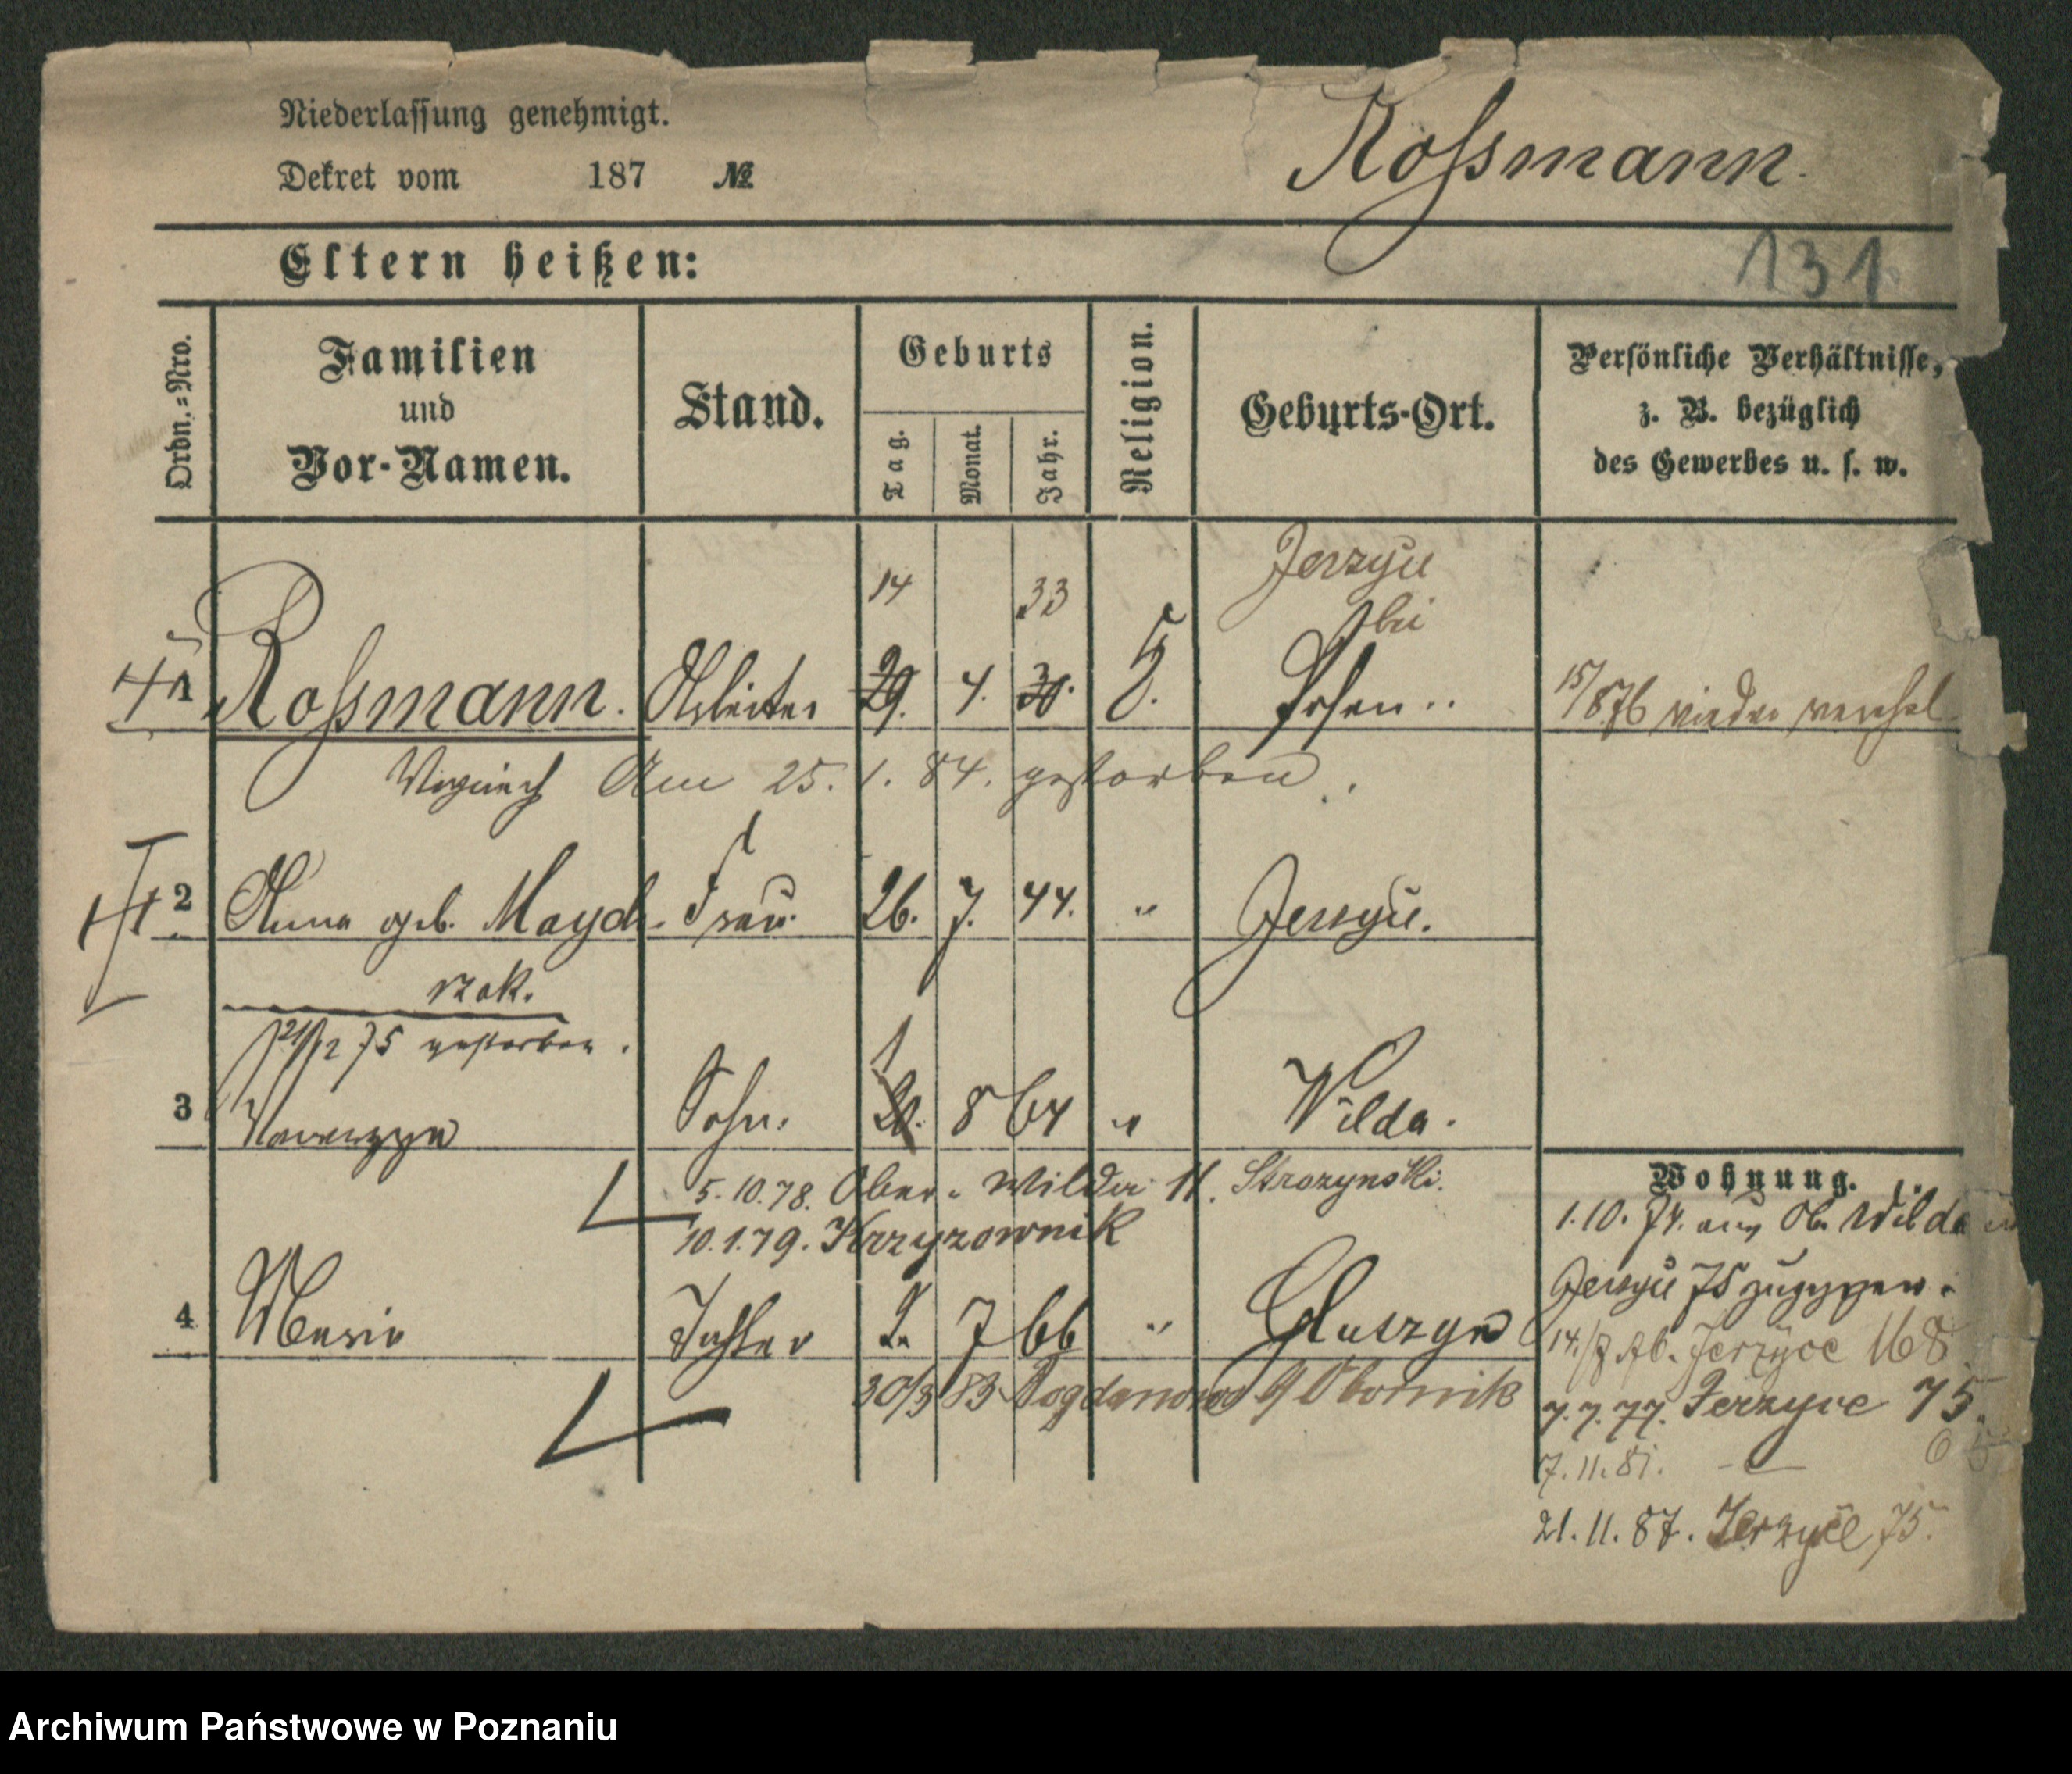 Niederlassung genehmigt.
Dekret vom 187 №
Roßmann.
Eltern heißen:
131
Ordn.=Nro.
Familien
und
Vor-Namen.
Stand.
Geburts
Tag.
Monat.
Jahr.
Religion.
Geburts-Ort.
Persönliche Verhältnisse,
z. B. bezüglich
des Gewerbes u. s. w.
14 33 bei
1 Roßmann. Arbeiter 29. 4. Posen
15/8.76 wieder
Am 25. 1. 84. gestorben.
2 Anna geb. Mayd- Frau. 26. 7. 44. "
rzak.
75 gestorben.
1
3 Sohn. 8 64 " Wilda.
5.10.78. Ober-Wilda 11. Strozynski.
10.1.79. Krzyzownik
4 Tochter 2. 7 66 " Gluszyn
30/3 83 Bogdanowo Obornik
Wohnung.
1.10.74. aus Ob. Wilda
75
Jerzyce 168
7.7.77. Jerzyce 75.
7.11.81. —
21.11.87. Jerzyce 75.
Archiwum Państwowe w Poznaniu